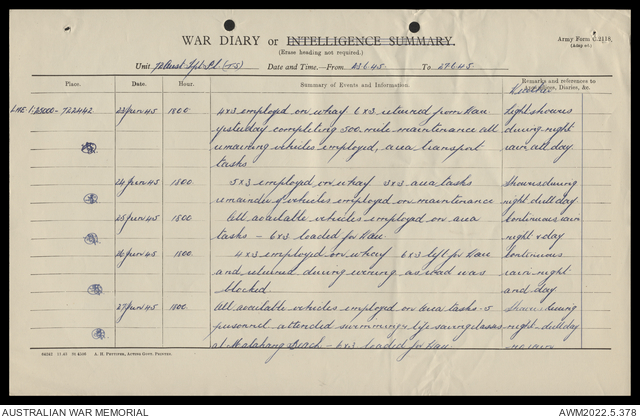 WAR DIARY or INTELLIGENCE SUMMARY.
(Erase heading not required.)
Army Form C.2118.
(Adapted)
Unit Plaust Tpt Pl. (JS) Date and Time.—From 23.6.45 To 27.6.45
Place. Date. Hour. Summary of Events and Information. Remarks and references to Appendices, Diaries, &c.
Weather
LAE 1:25000-722442 23 Jun 45 1800 4x3 employed on wharf 6x3 returned from Lau Light showers
yesterday completing 500 mile maintenance all during night
remaining vehicles employed, area transport rain all day
tasks
24 Jun 45 1800 5x3 employed on wharf 3x3 area tasks Showers during
remainder of vehicles employed on maintenance night dull day
25 Jun 45 1800 All available vehicles employed on area Continuous rain
tasks – 6x3 loaded for Lau night & day
26 Jun 45 1800 4x3 employed on wharf 6x3 left for Lau Continuous
and returned during evening as road was rain night
blocked and day
27 Jun 45 1800 All available vehicles employed on area tasks. 5 Showers during
personnel attended swimming & life saving classes night - dull day
at Malahang Beach – 6x3 loaded for Lau. no rain
A. H. Pettifer, Acting Govt. Printer.
AUSTRALIAN WAR MEMORIAL
AWM2022.5.378